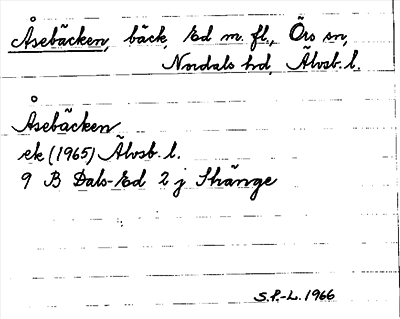 Åsebäcken, bäck, Ed m. fl., Örs sn,
Nordals hd, Älvsb. l.
Åsebäcken
ek (1965) Älvsb. l.
9 B Dals-Ed 2 j Skänge
S.P.-L. 1966